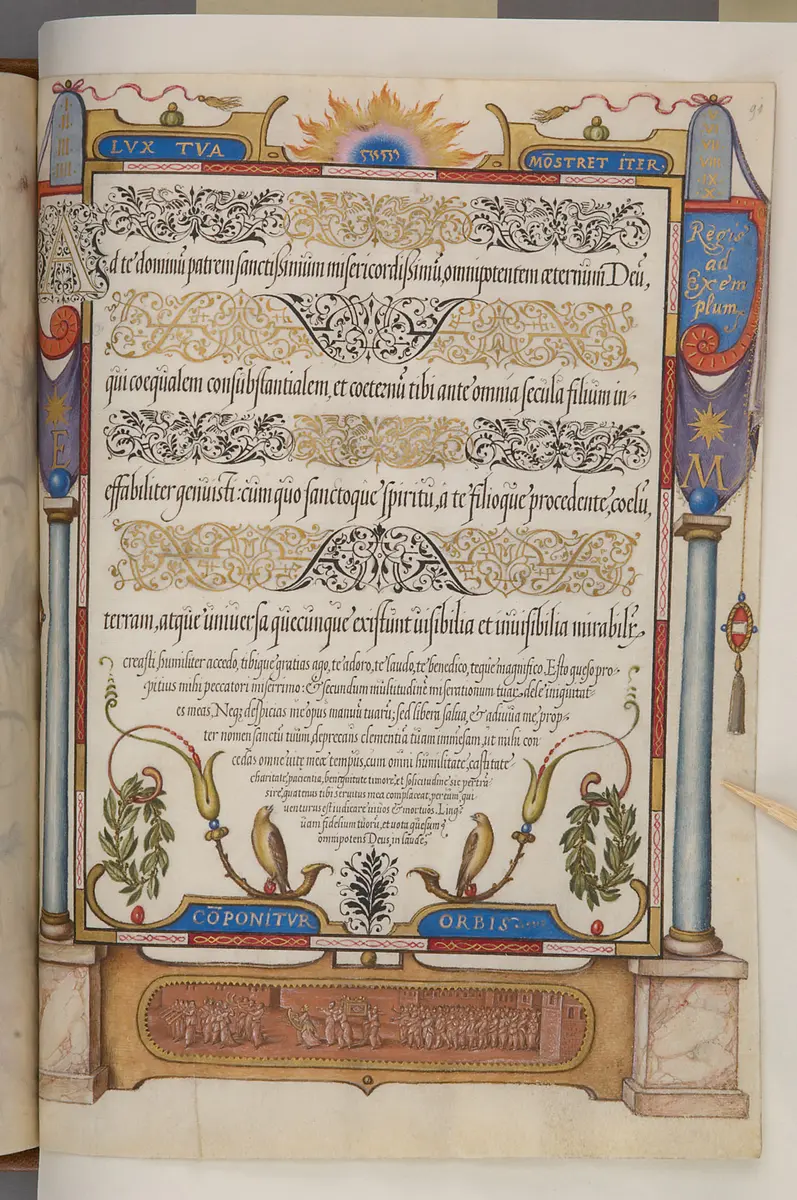 91
LVX TVA
MŌSTRET ITER.
I
II
III
IIII
Regis
ad
Exem
plum
Ad te dominū patrem sanctissimum misericordissimū, omnipotentem æternum Deū,
qui coequalem consubstantialem, et coeternū tibi ante omnia secula filium in-
effabiliter genuisti: cum quo sanctoque spiritu, à te filioque procedente, coelū,
terram, atque universa quecunque existunt uisibilia et inuisibilia mirabilr,
creasti, humiliter accedo, tibique gratias ago, te adoro, te laudo, te benedico, teque magnifico. Esto queso pro-
pitius mihi peccatori miserrimo: & secundum multitudinē miserationum tuar, dele iniquitat-
es meas, Neqz despicias me opus manuū tuarū; sed libera salua, & adiuua me, prop-
ter nomen sanctū tuum, deprecans clementiā tuam immēsam, ut mihi con
cedas omne uite meæ tempus, cum omni humilitate, castitate
charitate, pacientia, benignitate timore, et solicitudine sic pertrā
sire, quatenus tibi seruitus mea complaceat, per eum qui
uenturus est iudicare uiuos & mortuos. Ling
uam fidelium tuorū, et uota quesumꝰ
omnipotens Deus, in laude,
E
M
CŌPONITVR
ORBIS